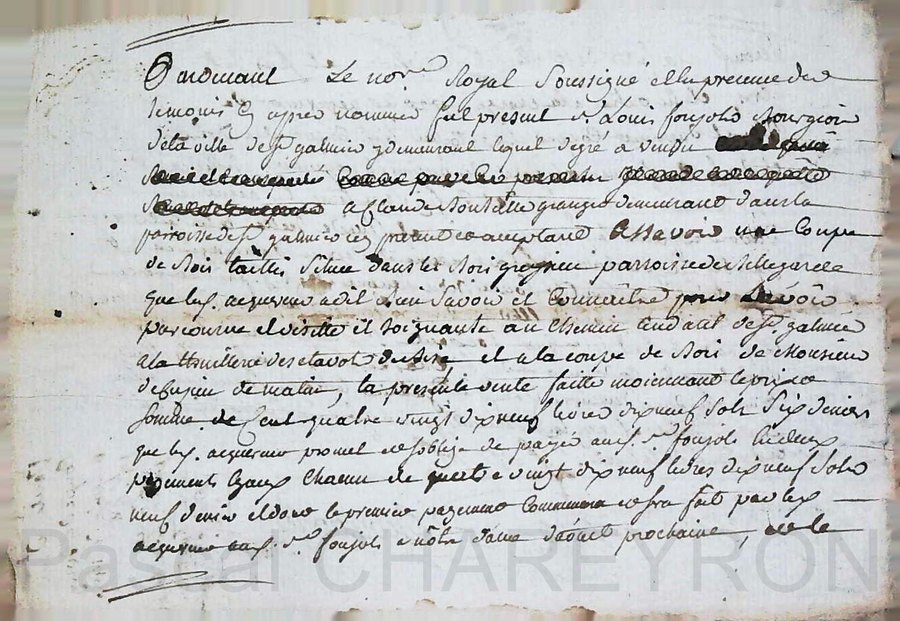 Pardevant Le no.re Royal Soussigné et En presence des
temoins Cy apres nommes fut present s.r Louis foujols Bourgeois
de la ville de s.t galmier y demeurant lequel degré a vendu
a Claude granger demeurant dans la
parroisse de s.t galmier icy present et acceptant Assavoir une Coupe
de Bois taillis Situé dans les Bois parroisse de Bellegarde
que led. acquereur a dit Bien Savoir et Connaitre pour Lavoir
parcourue et visitté et joignante au Chemin tendant de s.t galmier
a la et a la coupe de Bois de Monsieur
de matin, la presente vente faitte moiennant le prix et
Somme de Cent quatre vingt dix neuf livres dix neuf Sols Six deniers
que led. acquereur promet et soblige de payer aud. s.r foujols En deux
payements Egaux Chacun de quatre vingt dix neuf livres dix neuf Sols
neuf deniers et dont le premier payement Commencera et sera fait par led.
acquereur aud. s.r foujols a nôtre dame d'aoust prochaine, et le
Pascal CHAREYRON